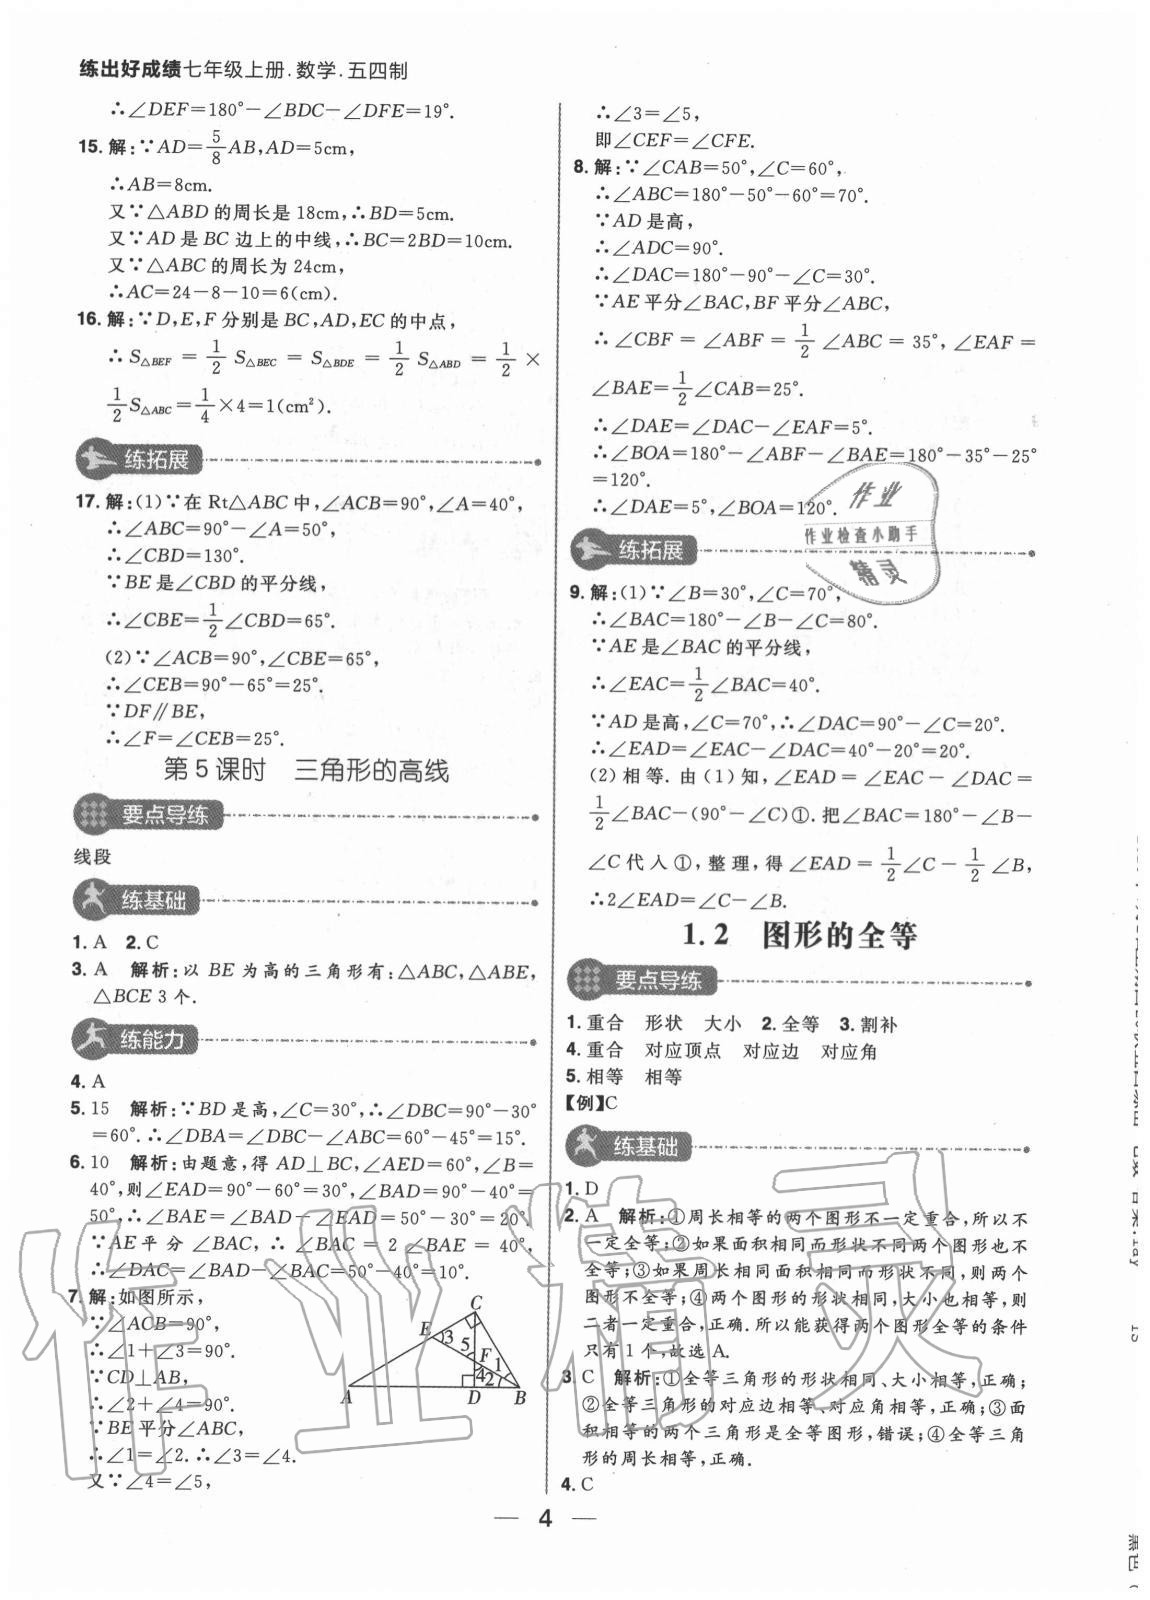 练出好成绩七年级上册.数学.五四制
∴∠DEF=180°-∠BDC-∠DFE=19°.
15.解:∵AD=5/8AB,AD=5cm,
∴AB=8cm.
又∵△ABD的周长是18cm,∴BD=5cm.
又∵AD是BC边上的中线,∴BC=2BD=10cm.
又∵△ABC的周长为24cm,
∴AC=24-8-10=6(cm).
16.解:∵D,E,F分别是BC,AD,EC的中点,
∴S△BEF=1/2 S△BEC=S△BDE=1/2 S△ABD=1/2×
1/2 S△ABC=1/4×4=1(cm²).
练拓展
17.解:(1)∵在Rt△ABC中,∠ACB=90°,∠A=40°,
∴∠ABC=90°-∠A=50°,
∴∠CBD=130°.
∵BE是∠CBD的平分线,
∴∠CBE=1/2∠CBD=65°.
(2)∵∠ACB=90°,∠CBE=65°,
∴∠CEB=90°-65°=25°.
∵DF∥BE,
∴∠F=∠CEB=25°.
第5课时 三角形的高线
要点导练
线段
练基础
1.A 2.C
3.A 解析:以BE为高的三角形有:△ABC,△ABE,
△BCE 3个.
练能力
4.A
5.15 解析:∵BD是高,∠C=30°,∴∠DBC=90°-30°
=60°.∴∠DBA=∠DBC-∠ABC=60°-45°=15°.
6.10 解析:由题意,得AD⊥BC,∠AED=60°,∠B=
40°,则∠EAD=90°-60°=30°,∠BAD=90°-40°=
50°,∴∠BAE=∠BAD-∠EAD=50°-30°=20°.
∵AE平分∠BAC,∴∠BAC=2∠BAE=40°,
∴∠DAC=∠BAD-∠BAC=50°-40°=10°.
7.解:如图所示,
∵∠ACB=90°,
∴∠1+∠3=90°.
∵CD⊥AB,
∴∠2+∠4=90°.
∵BE平分∠ABC,
∴∠1=∠2.∴∠3=∠4.
又∵∠4=∠5,
C
E 3 5
F 1
4 2
A D B
∴∠3=∠5,
即∠CEF=∠CFE.
8.解:∵∠CAB=50°,∠C=60°,
∴∠ABC=180°-50°-60°=70°.
∵AD是高,
∴∠ADC=90°.
∴∠DAC=180°-90°-∠C=30°.
∵AE平分∠BAC,BF平分∠ABC,
∴∠CBF=∠ABF=1/2∠ABC=35°,∠EAF=
∠BAE=1/2∠CAB=25°.
∴∠DAE=∠DAC-∠EAF=5°.
∴∠BOA=180°-∠ABF-∠BAE=180°-35°-25°
=120°.
∴∠DAE=5°,∠BOA=120°.
作业
作业检查小助手
精灵
练拓展
9.解:(1)∵∠B=30°,∠C=70°,
∴∠BAC=180°-∠B-∠C=80°.
∵AE是∠BAC的平分线,
∴∠EAC=1/2∠BAC=40°.
∵AD是高,∠C=70°,∴∠DAC=90°-∠C=20°.
∴∠EAD=∠EAC-∠DAC=40°-20°=20°.
(2)相等.由(1)知,∠EAD=∠EAC-∠DAC=
1/2∠BAC-(90°-∠C)①.把∠BAC=180°-∠B-
∠C代入①,整理,得∠EAD=1/2∠C-1/2∠B,
∴2∠EAD=∠C-∠B.
1.2 图形的全等
要点导练
1.重合 形状 大小 2.全等 3.割补
4.重合 对应顶点 对应边 对应角
5.相等 相等
【例】C
练基础
1.D
2.A 解析:①周长相等的两个图形不一定重合,所以不
一定全等;②如果面积相同而形状不同两个图形也不
全等;③如果周长相同面积相同而形状不同,则两个
图形不全等;④两个图形的形状相同,大小也相等,则
二者一定重合,正确.所以能获得两个图形全等的条件
只有1个,故选A.
3.C 解析:①全等三角形的形状相同、大小相等,正确;
②全等三角形的对应边相等、对应角相等,正确;③面
积相等的两个三角形是全等图形,错误;④全等三角
形的周长相等,正确.
4.C
— 4 —
作业精灵